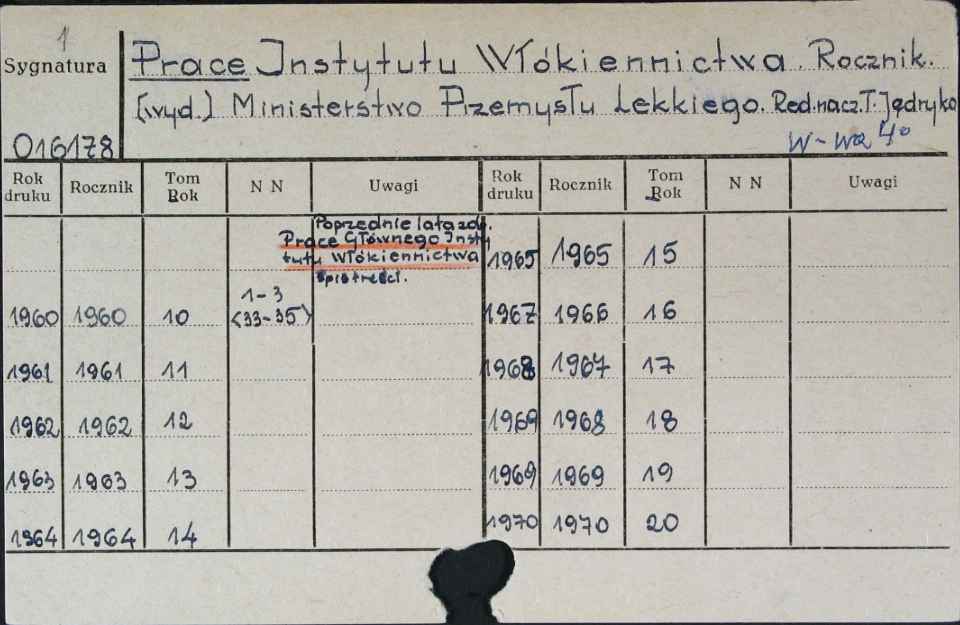 1
Sygnatura
Prace Instytutu Włókiennictwa. Rocznik.
[wyd.] Ministerstwo Przemysłu Lekkiego. Red.nacz.T.Jędryka
016178
W-wa 4°
Rok druku Rocznik Tom Rok N N Uwagi Rok druku Rocznik Tom Rok N N Uwagi
Poprzednie lata zob.
Prace Głównego Insty
tutu Włókiennictwa
1965 1965 15
1960 1960 10 1-3 (33-35) 1967 1966 16
1961 1961 11 1968 1967 17
1962 1962 12 1969 1968 18
1963 1963 13 1969 1969 19
1964 1964 14 1970 1970 20